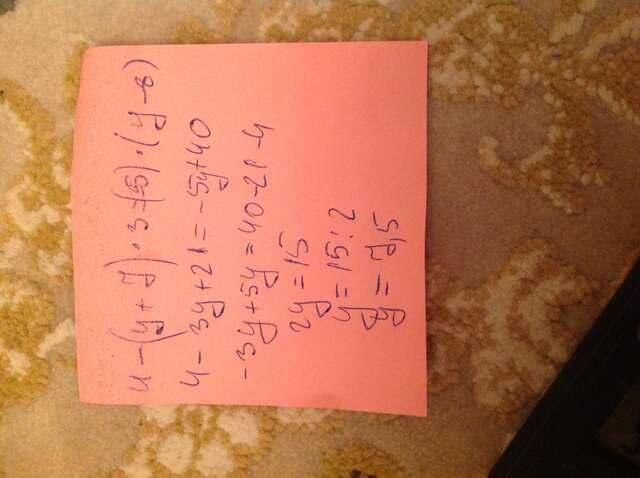 4-(y+7)·3=(-5)·(y-8)
4-3y+21=-5y+40
-3y+5y=40-21-4
2y=15
y=15:2
y=7,5